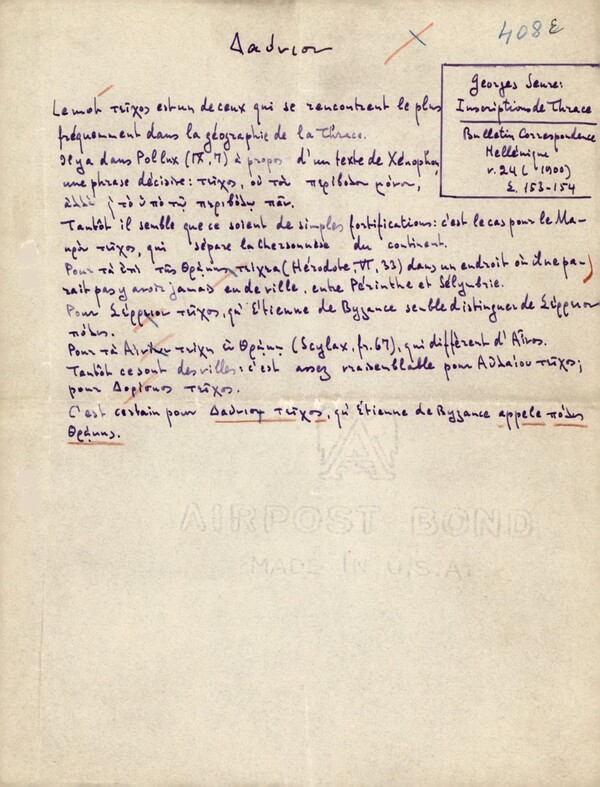 Δαύνιον
408ε
Georges Seure:
Inscriptions de Thrace
Bulletin Correspondence
Hellénique
v. 24 ( 1900)
Σ. 153-154
Le mot τεῖχος est un de ceux qui se rencontrent le plus
fréquemment dans la géographie de la Thrace.
Il y a dans Pollux (IX, 7) à propos d'un texte de Xénophon,
une phrase décisive: τεῖχος, οὐ τὸ περίβολον μόνον,
ἀλλὰ τὸ ὑπὸ τῷ περιβόλῳ πᾶν.
Tantôt il semble que ce soient de simples fortifications: c'est le cas pour le Μα-
κρὸν τεῖχος, qui sépare la Chersonnèse du continent.
Pour τὰ ἐπὶ τῆς Θρᾴκης τείχεα (Hérodote, VI, 33) dans un endroit où il ne pa-
rait pas y avoir jamais eu de ville, entre Périnthe et Sélymbrie.
Pour Σέρρειον τεῖχος, qu'Étienne de Byzance semble distinguer de Σέρρειον
πόλις.
Pour τὰ τείχη ἐν Θρᾴκῃ (Scylax, fr. 67), qui diffèrent d'Αἶνος.
Tantôt ce sont des villes: c'est assez vraisemblable pour Αὐλαίου τεῖχος;
pour Δορίσκος τεῖχος.
C'est certain pour Δαύνιον τεῖχος, qu'Étienne de Byzance appele πόλις
Θρᾴκης.
AIRPOST BOND
MADE IN U.S.A.